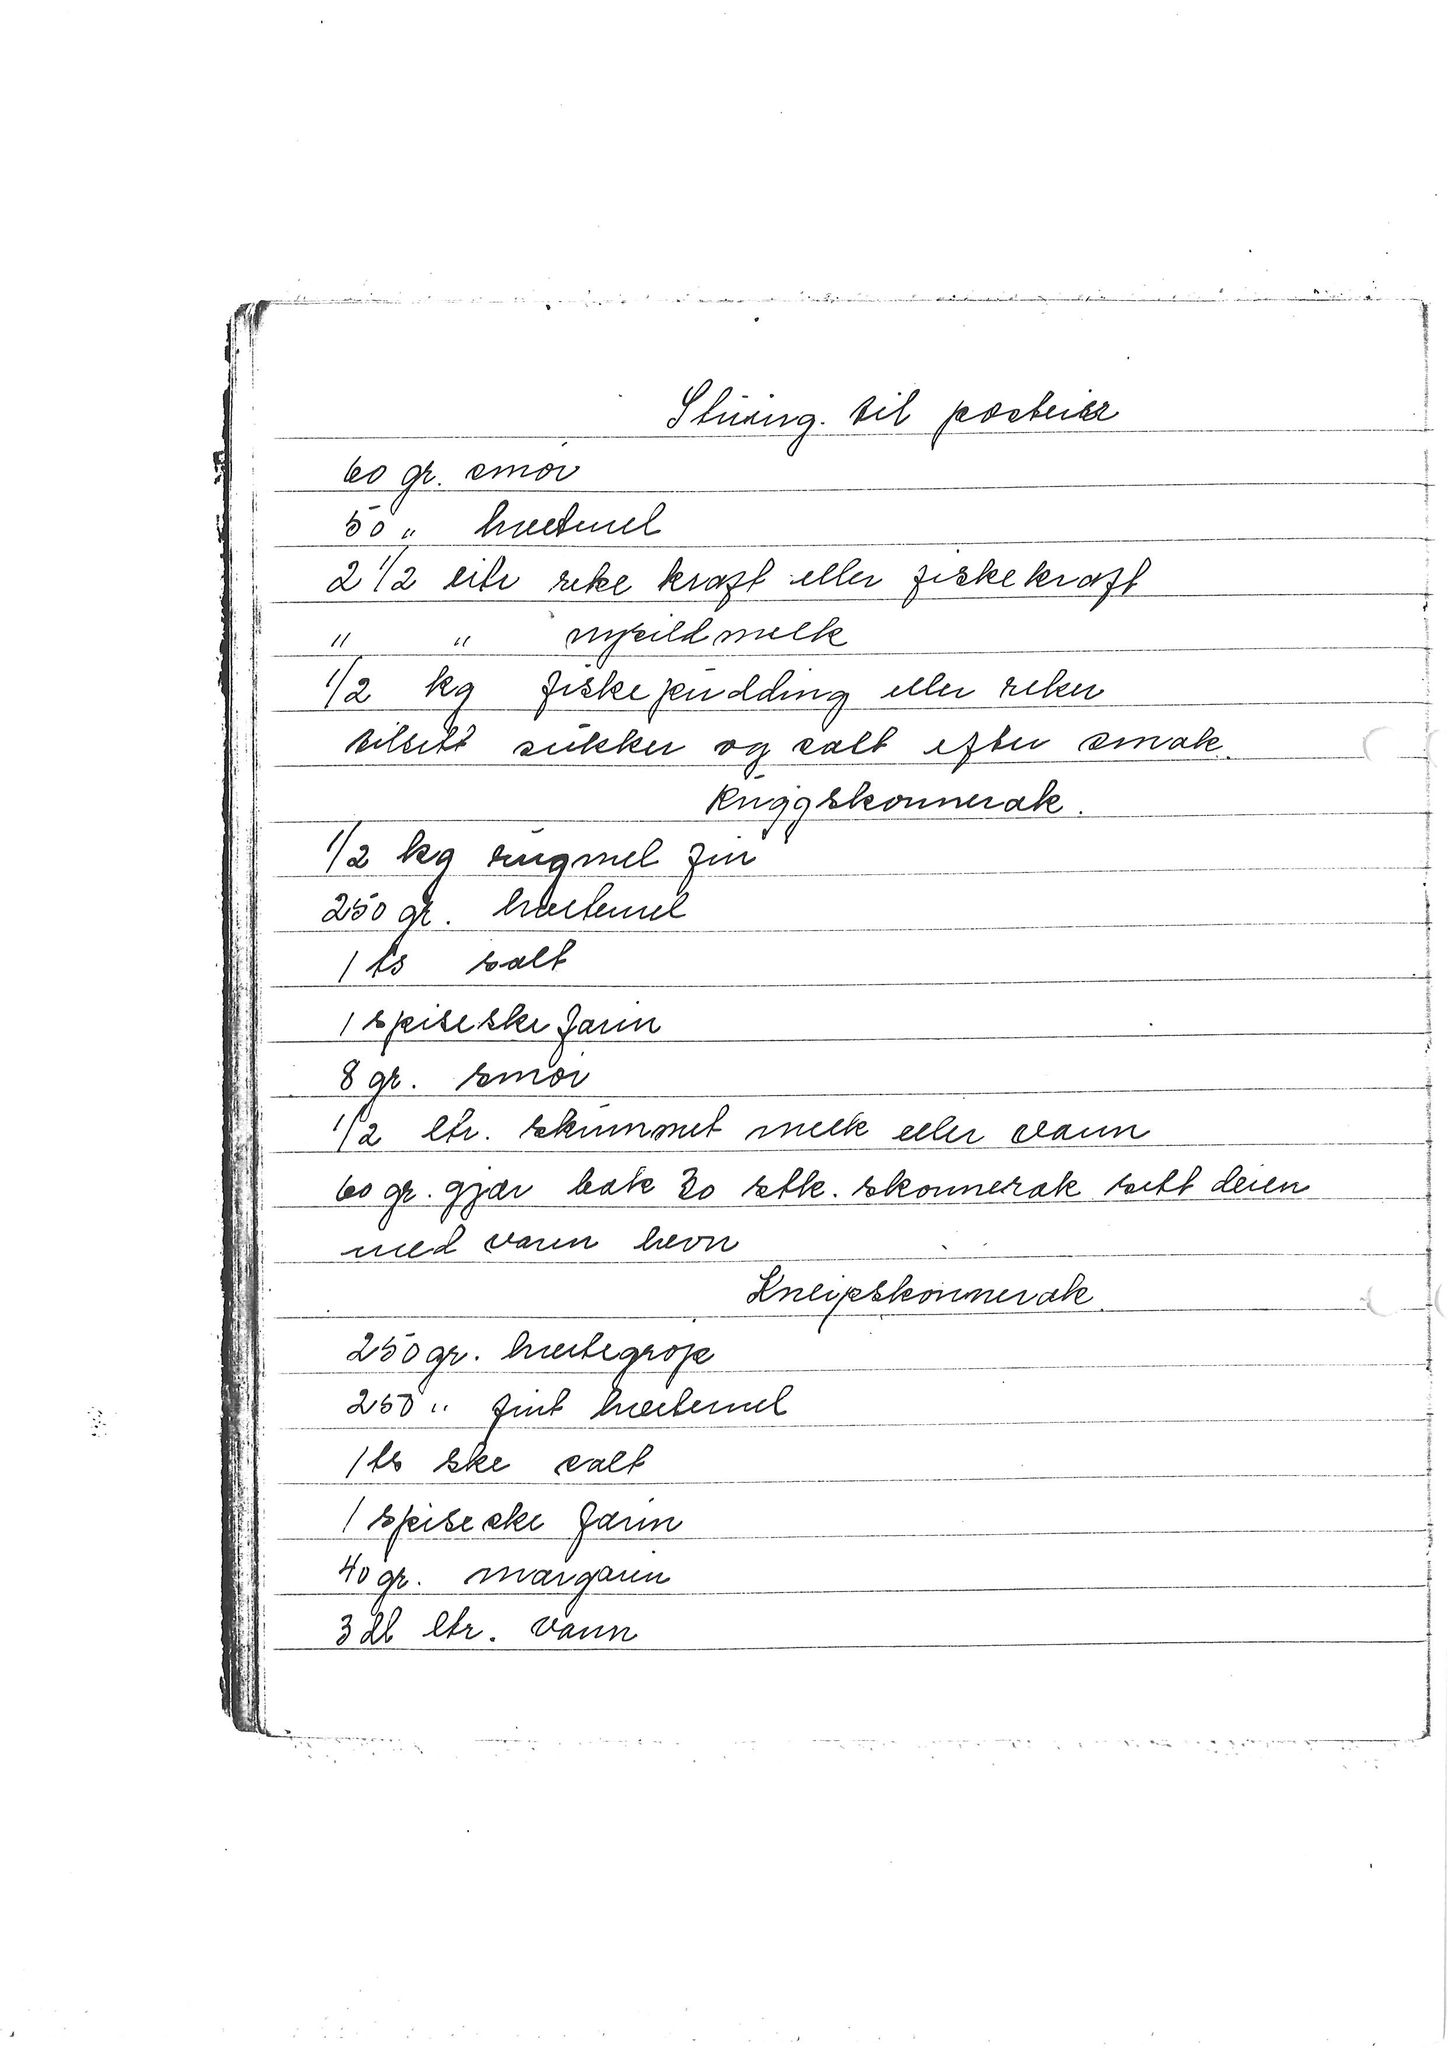 Stuing. til posteier
60 gr. smør
50 " hvetemel
2 1/2 litr reke kraft eller fiskekraft
" " nysild melk
1/2 kg fiskepudding eller reker
tilsett sukker og salt efter smak.
Ruggskonnerak.
1/2 kg rugmel fin
250 gr. hvetemel
1 ts salt
1 spiseske farin
8 gr. smør
1/2 ltr. skummet melk eller vann
60 gr. gjær bak 30 stk. skonnerak sett deien
med varm hevn
Kneipskonnerak.
250 gr. hvetegrop
250 " fint hvetemel
1 ts ske salt
1 spiseske farin
40 gr. margarin
3 dl ltr. vann